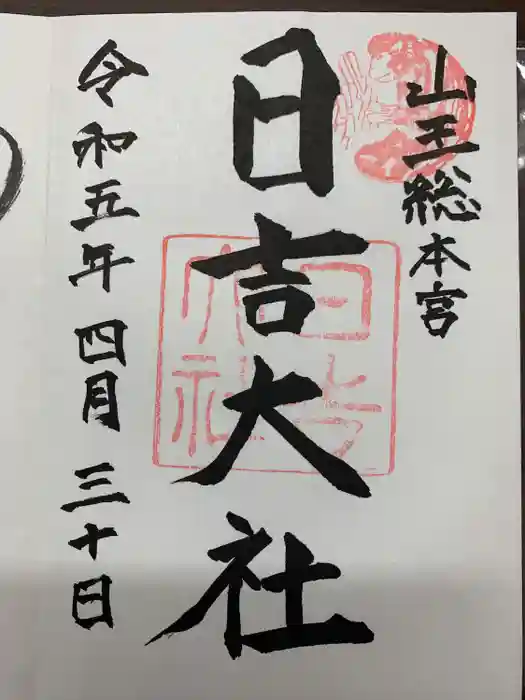 山王総本宮
日吉大社
日吉大社
令和五年四月三十日